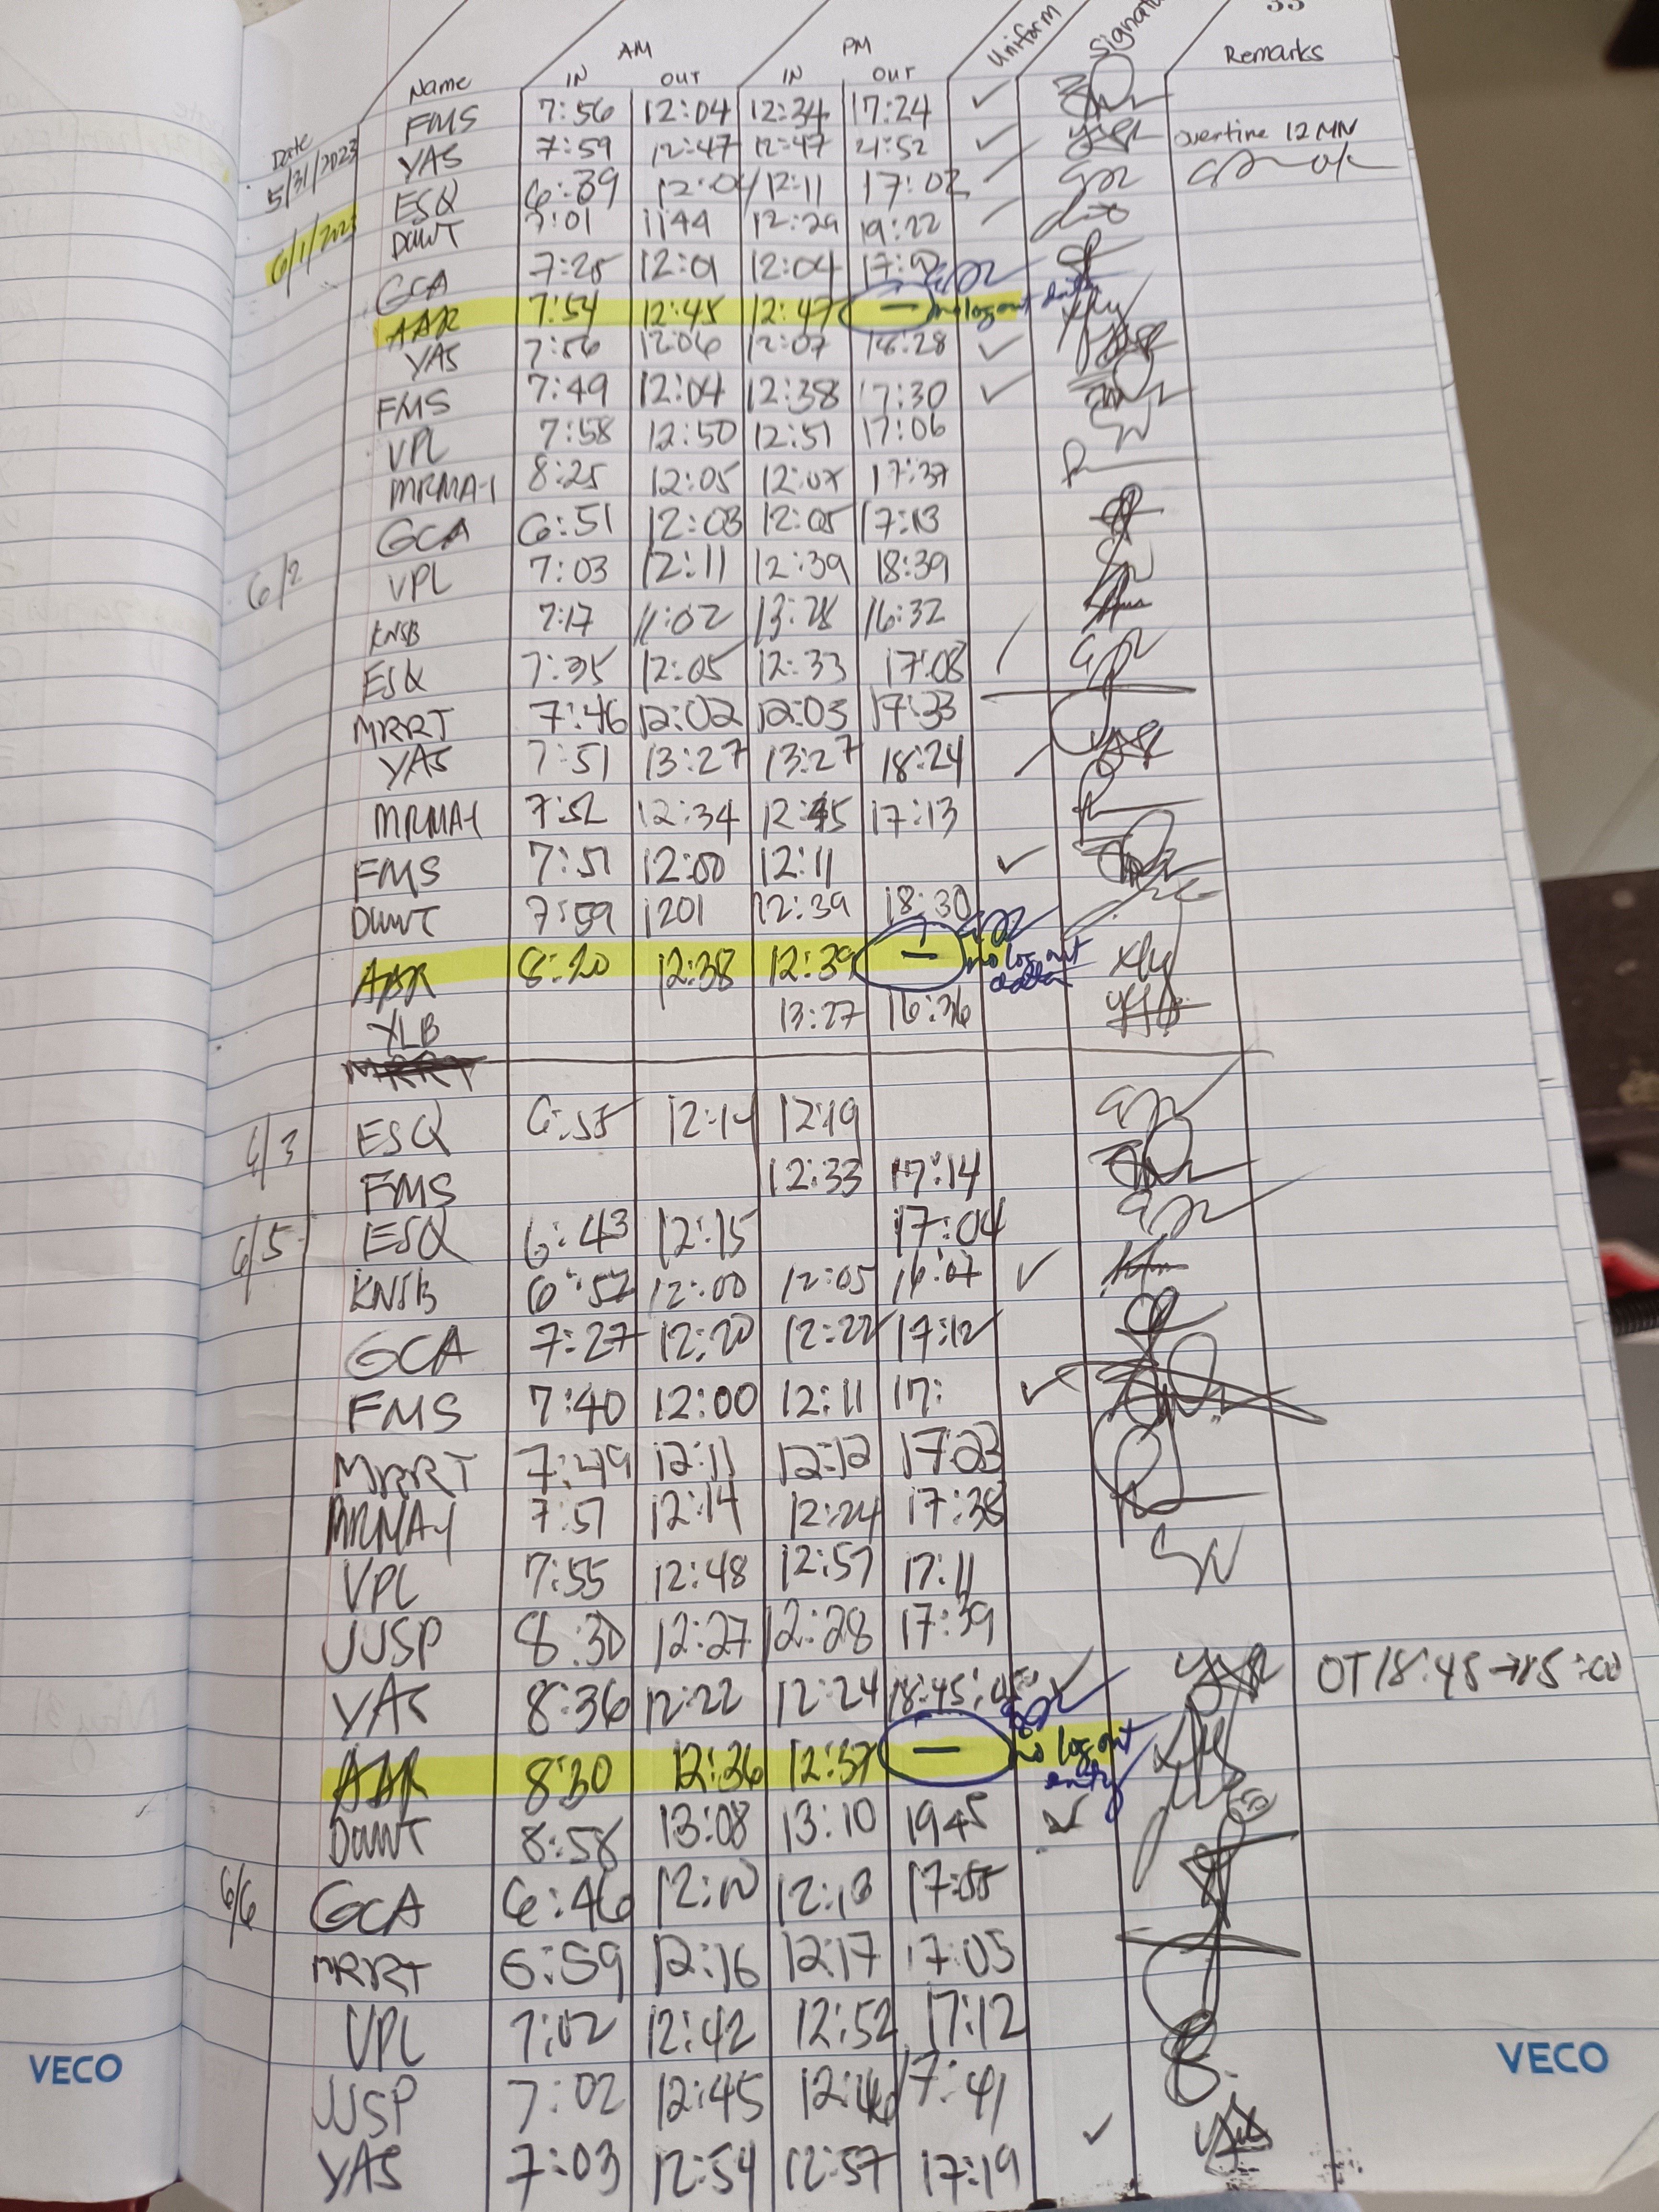 33
AM PM
Date Name IN OUT IN OUT Uniform Remarks
5/31/2023 FMS 7:56 12:04 12:34 17:24 ✓
YAS 7:59 12:47 12:47 21:52 ✓ overtime 12 MN
6/1/2023 ESQ 6:39 12:04 12:11 17:02
7:01 1144 12:29 19:22
GCA 7:25 12:01 12:04
AAR 7:54 12:45 12:47 — no log out data
YAS 7:56 12:06 12:07 18:28 ✓
FMS 7:49 12:04 12:38 17:30 ✓
VPL 7:58 12:50 12:51 17:06
MRMA-1 8:25 12:05 12:07 17:37
GCA 6:51 12:03 12:05 17:13
6/2 VPL 7:03 12:11 12:39 18:39
KNSB 7:17 11:02 13:28 16:32
ESQ 7:35 12:05 12:33 17:08
MRRT 7:46 12:02 12:03 17:33
YAS 7:51 13:27 13:27 18:24
MRMA-1 7:52 12:34 12:45 17:13
FMS 7:51 12:00 12:11 ✓
7:59 1201 12:39 18:30
AAR 8:20 12:38 12:39 — no log out data
YLB 13:27 16:36
MRRT
6/3 ESQ 6:55 12:14 12:19
FMS 12:33 17:14
6/5 ESQ 6:43 12:15 17:04
KNSB 6:52 12:00 12:05 16:07 ✓
GCA 7:27 12:20 12:22 17:12
FMS 7:40 12:00 12:11 17: ✓
MRRT 7:49 12:11 12:12 17:23
MRMA-1 7:51 12:14 12:24 17:38
VPL 7:55 12:48 12:57 17:11
JJSP 8:30 12:27 12:28 17:39
YAS 8:36 12:22 12:24 18:45 ✓ OT 18:45
AAR 8:30 12:36 12:37 — no log out entry
8:58 13:08 13:10 1945 ✓
6/6 GCA 6:46 12:10 17:55
MRRT 6:59 12:16 12:17 17:05
VPL 7:02 12:42 12:52 17:12
JJSP 7:02 12:45 12:46 17:41
YAS 7:03 12:54 12:57 17:19 ✓
VECO VECO